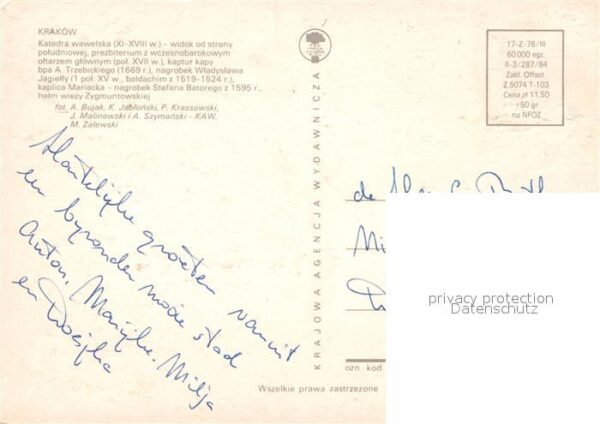 KRAKÓW
Katedra wawelska (XI-XVIII w.) - widok od strony
południowej, prezbiterium z wczesnobarokowym
ołtarzem głównym (poł. XVII w.), kaptur kapy
bpa A. Trzebickiego (1669 r.), nagrobek Władysława
Jagiełły (1 poł. XV w., baldachim z 1519-1524 r.),
kaplica Mariacka - nagrobek Stefana Batorego z 1595 r.,
hełm wieży Zygmuntowskiej
fot. A. Bujak, K. Jabłoński, P. Krassowski,
J. Malinowski i A. Szymański - KAW,
M. Zalewski
Hartelijke groeten vanuit
een byzonder mooie stad
Anton, Marijke, Milja
en Roesjka
KRAJOWA AGENCJA WYDAWNICZA
17-Z-78/III
60 000 egz.
II-3/287/84
Zakł. Offset.
Z 5074 T-103
Cena zł 11,50
+50 gr
na NFOZ
de
privacy protection
Datenschutz
ozn kod
Wszelkie prawa zastrzeżone